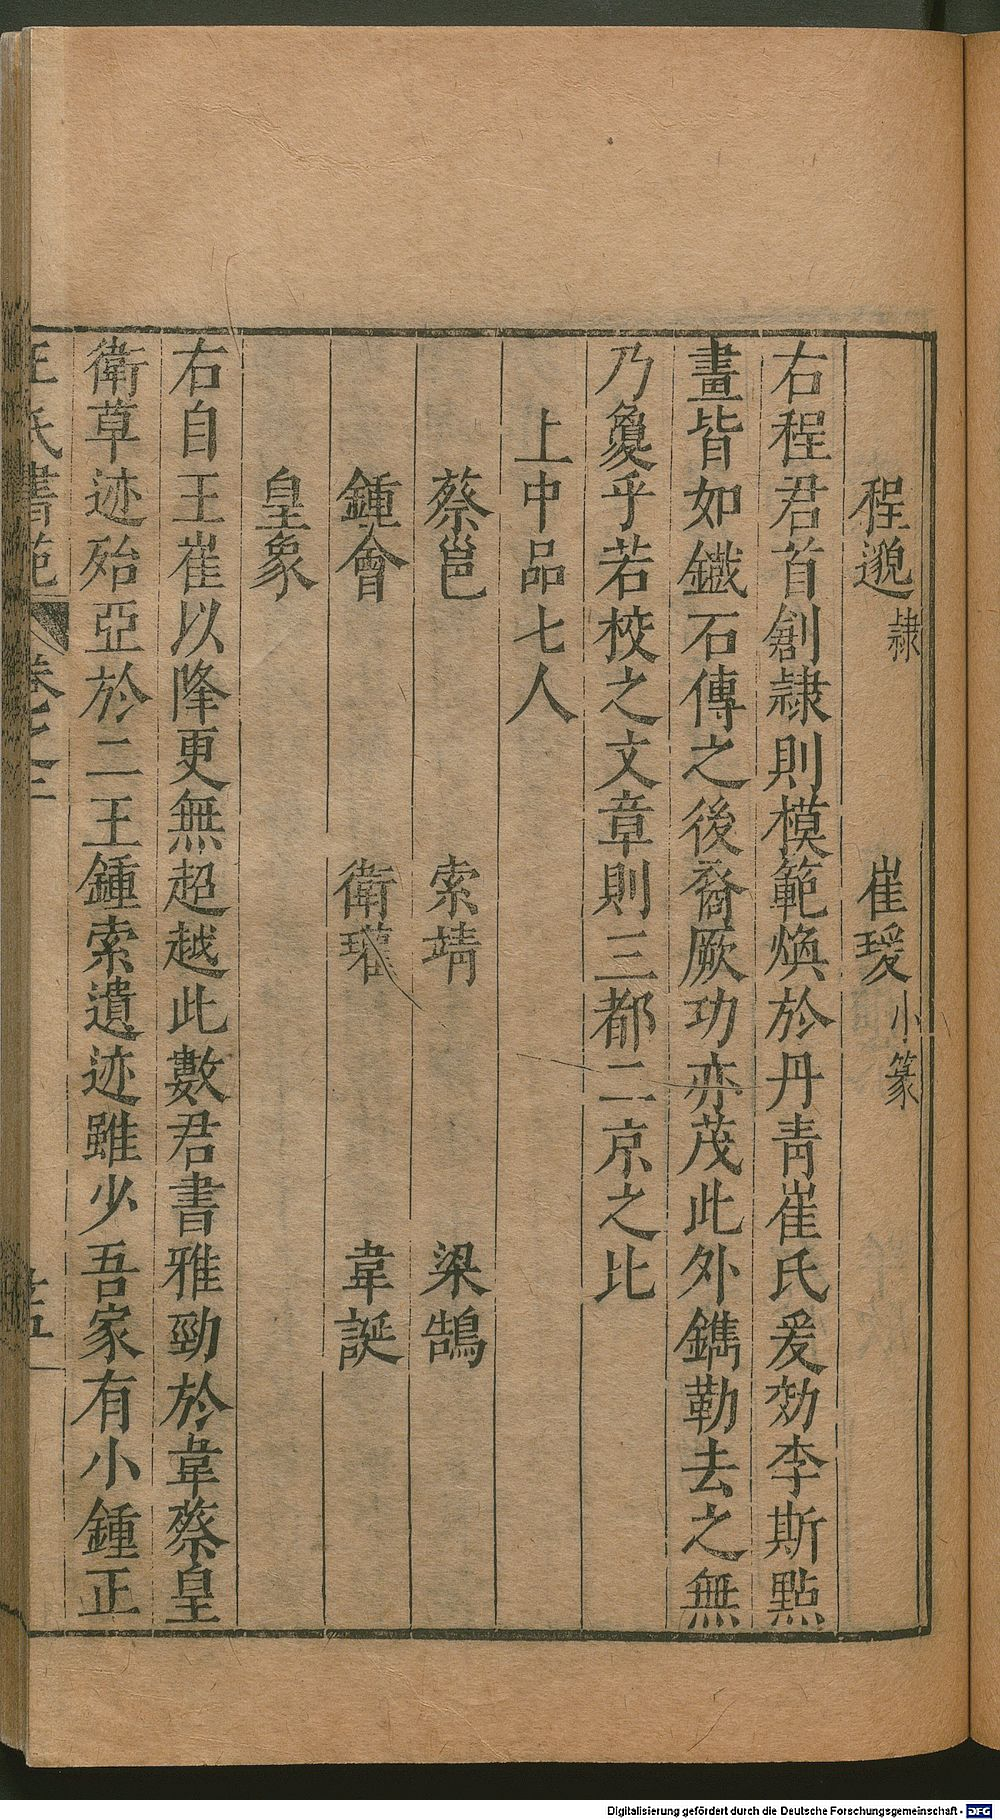 程邈隸 崔瑗小篆
右程君首創隷則模範煥於丹青崔氏爰効李斯點
畫皆如鐵石傳之後裔厥功亦茂此外鐫勒去之無
乃敻乎若挍之文章則三都二京之比
上中品七人
蔡邕 索靖 梁鵠
鍾會 衛瓘 韋誕
皇象
右自王崔以降更無超越此數君書雅勁於韋蔡皇
衛草迹殆亞於二王鍾索遺迹雖少吾家有小鍾正
王氏書苑 卷之二
Digitalisierung gefördert durch die Deutsche Forschungsgemeinschaft - DFG